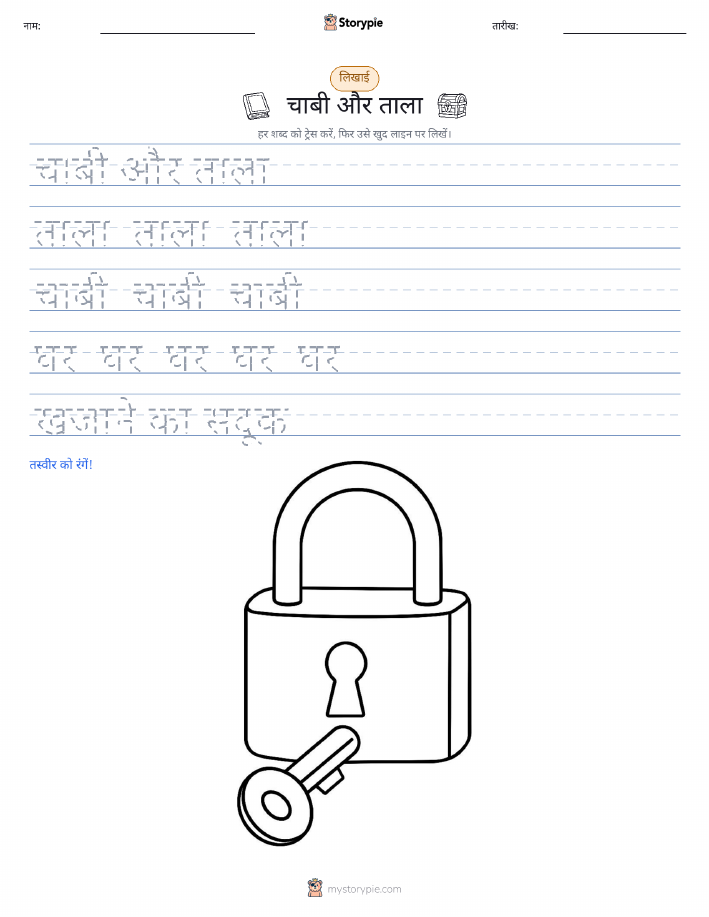 नाम:
Storypie
तारीख:
लिखाई
चाबी और ताला
हर शब्द को ट्रेस करें, फिर उसे खुद लाइन पर लिखें।
चाबी और ताला
ताला ताला ताला
चाबी चाबी चाबी
घर घर घर घर घर
खजाने का सदूक
तस्वीर को रंगें!
mystorypie.com